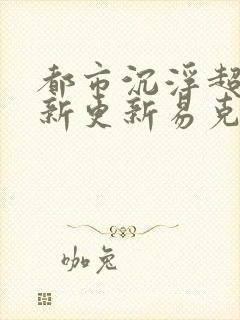 都市沉浮超
新更新易克
咖兔